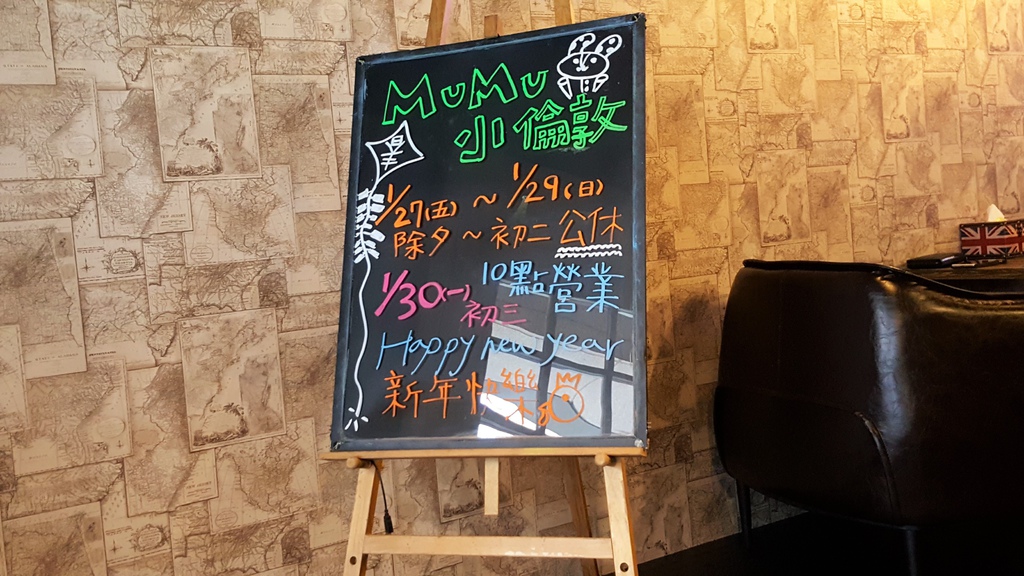 MuMu
小倫敦
1/27(五)~1/29(日)
除夕~初二公休
1/30(一) 10點營業
初三
Happy new year
新年快樂